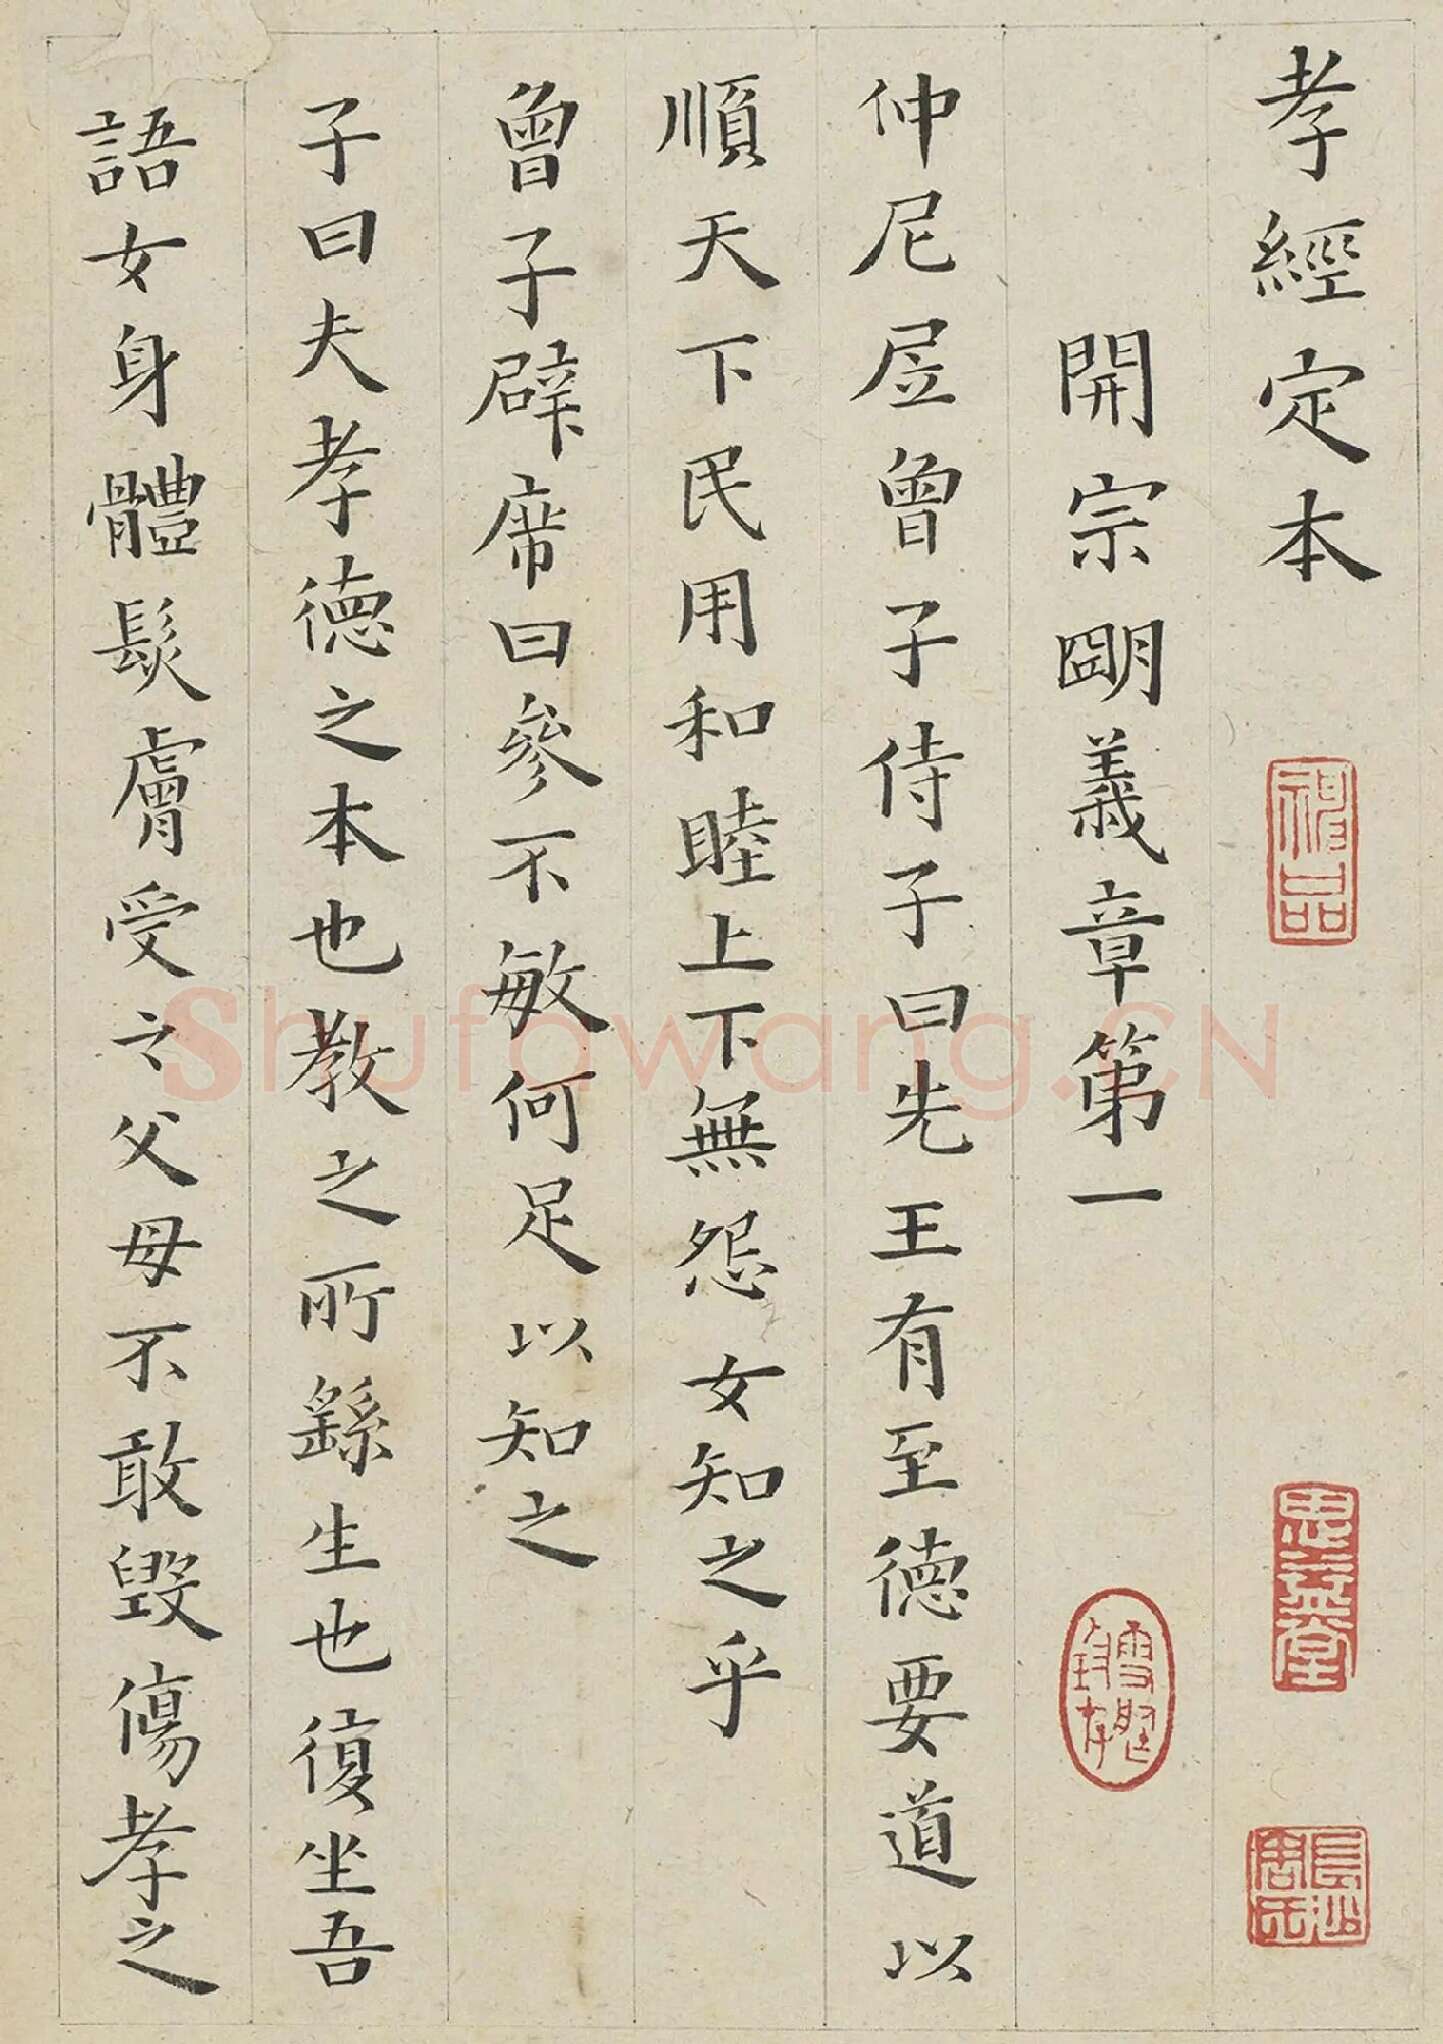 孝經定本
開宗朙義章第一
仲尼凥曾子侍子曰先王有至德要道以
順天下民用和睦上下無怨女知之乎
曾子辟席曰參不敏何足以知之
子曰夫孝德之本也教之所繇生也復坐吾
語女身體髮膚受之父母不敢毀傷孝之
神品
思益堂
長沙
周氏
Shufawang.CN